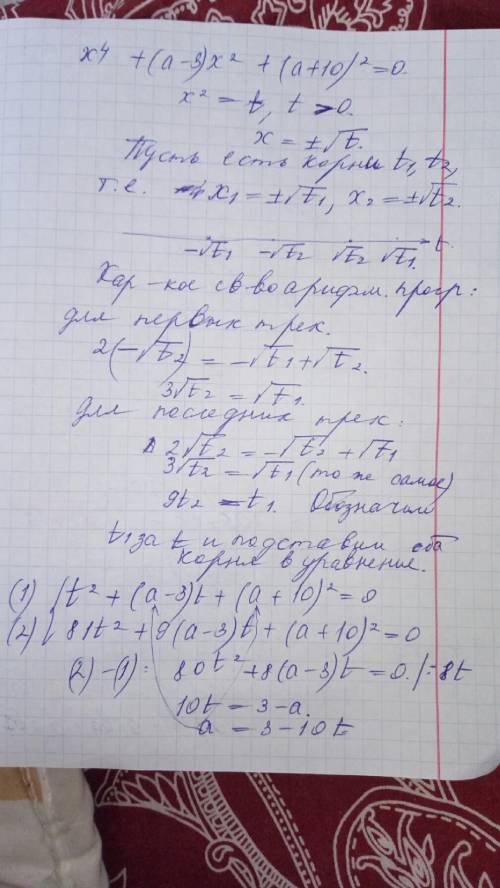 x⁴ + (a-3)x² + (a+10)² = 0.
x² = t, t > 0.
x = ±√t.
Пусть есть корни t₁, t₂,
т.е. x₁ = ±√t₁, x₂ = ±√t₂.
t
-√t₁ -√t₂ √t₂ √t₁.
Хар-кое св-во арифм. прогр:
для первых трех.
2(-√t₂) = -√t₁ + √t₂.
3√t₂ = √t₁.
Для последних трех:
2√t₂ = -√t₂ + √t₁
3√t₂ = √t₁ (то же самое)
9t₂ = t₁. Обозначим
t₁ за t и подставим оба
корня в уравнение.
(1) { t² + (a-3)t + (a+10)² = 0
(2) { 81t² + 9(a-3)t + (a+10)² = 0
(2)-(1): 80t² + 8(a-3)t = 0. |:8t
10t = 3-a.
a = 3-10t